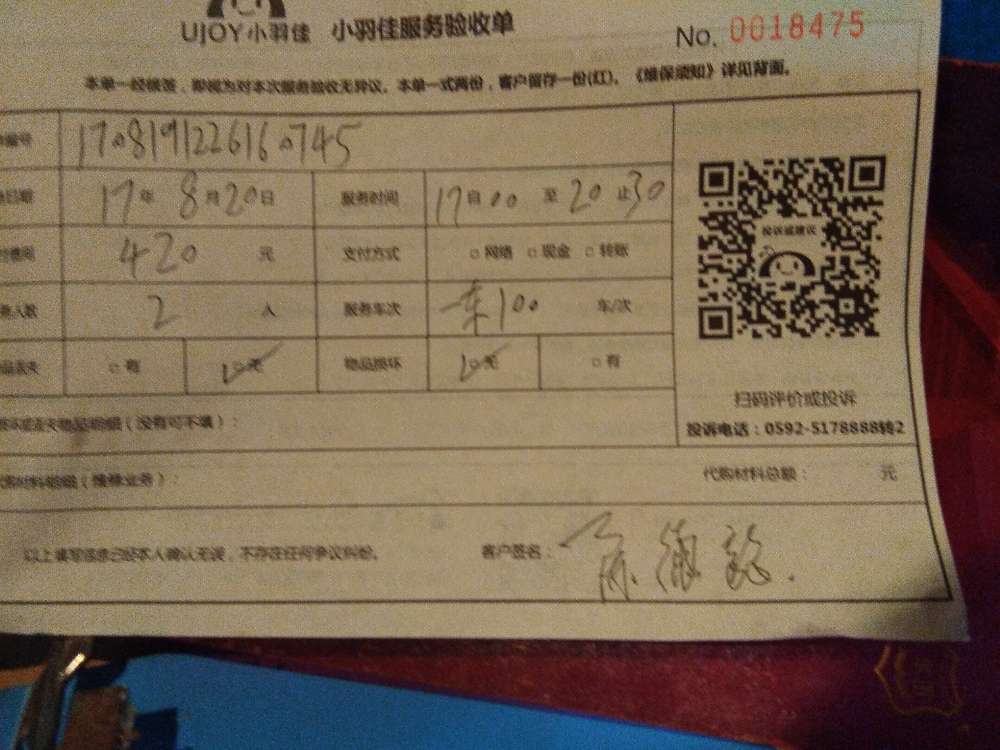 UJOY小羽佳 小羽佳服务验收单 No. 0018475
本单一经核签，即视为对本次服务验收无异议。本单一式两份，客户留存一份(红)。《维保须知》详见背面。
编号 1708191226160745
日期 17年 8月20日 服务时间 17自00 至 20止30
费用 420 元 支付方式 □网络 □现金 □转账
人数 2 人 服务车次 车100 车/次
品丢失 □有 □无 物品损坏 □无 □有
投诉或建议
扫码评价或投诉
投诉电话：0592-5178888转2
损坏或丢失物品明细（没有可不填）：
代购材料明细（维修业务）： 代购材料总额： 元
以上填写信息已经本人确认无误，不存在任何争议纠纷。 客户签名：